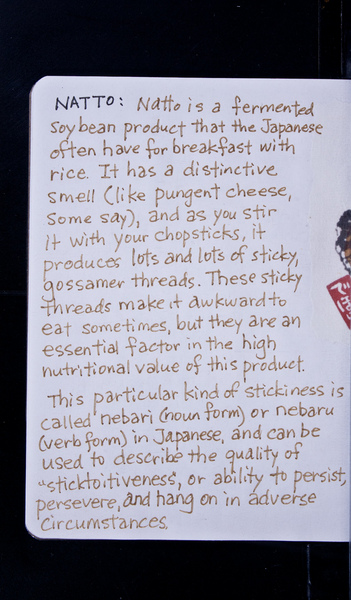 NATTO: Natto is a fermented
soybean product that the Japanese
often have for breakfast with
rice. It has a distinctive
smell (like pungent cheese,
some say), and as you stir
it with your chopsticks, it
produces lots and lots of sticky,
gossamer threads. These sticky
threads make it awkward to
eat sometimes, but they are an
essential factor in the high
nutritional value of this product.
This particular kind of stickiness is
called nebari (noun form) or nebaru
(verb form) in Japanese, and can be
used to describe the quality of
"sticktoitiveness", or ability to persist,
persevere, and hang on in adverse
circumstances.